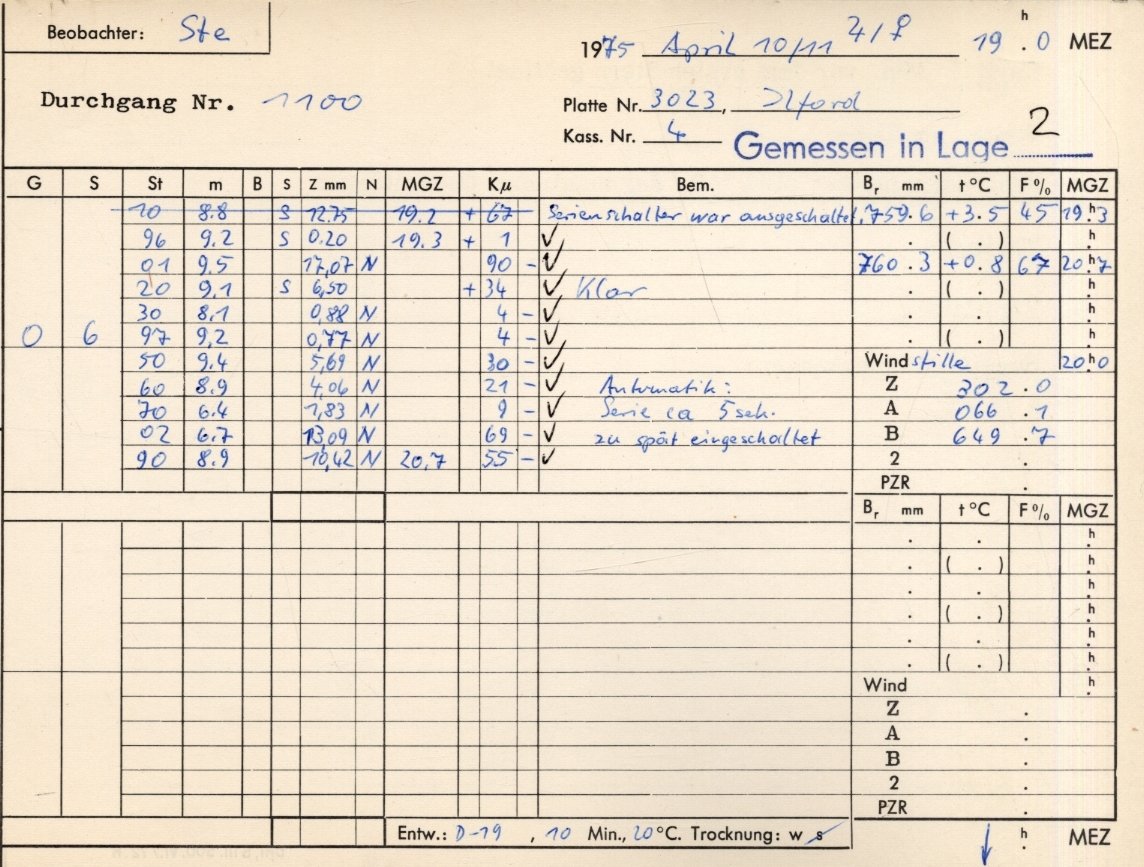 Beobachter: Ste
1975 April 10/11 ♃/♀ 19 h . 0 MEZ
Durchgang Nr. 1100
Platte Nr. 3023, Ilford
Kass. Nr. 4
Gemessen in Lage 2
G S St m B S Z mm N MGZ Kμ Bem. Br mm t °C F % MGZ
10 8.8 S 12.75 19.2 + 67 Serienschalter war ausgeschaltet, 759.6 +3.5 45 19.h3
96 9.2 S 0.20 19.3 + 1 ✓ . ( . ) h.
01 9.5 17,07 N 90 - ✓ 760.3 +0.8 67 20.h7
20 9.1 S 6,50 + 34 ✓ Klar . ( . ) h.
30 8.1 0,88 N 4 - ✓ . . h.
0 6 97 9,2 0,77 N 4 - ✓ . ( . ) h.
50 9.4 5,69 N 30 - ✓ Windstille 20h0
60 8.9 4,06 N 21 - ✓ Automatik: Z 302.0
70 6.4 1,83 N 9 - ✓ Serie ca 5 sek. A 066.1
02 6.7 13,09 N 69 - ✓ zu spät eingeschaltet B 649.7
90 8.9 10,42 N 20,7 55 - ✓ 2 .
PZR .
Br mm t °C F % MGZ
. . h.
. ( . ) h.
. . h.
. ( . ) h.
. . h.
. ( . ) h.
Wind h.
Z .
A .
B .
2 .
PZR .
Entw.: D-19, 10 Min., 20 °C. Trocknung: w s ↓ h. MEZ